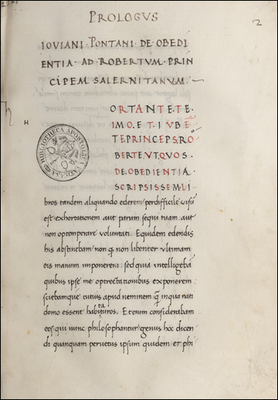 PROLOGVS
2
IOVIANI PONTANI DE OBEDI
ENTIA AD ROBERTVM PRIN
CIPEM SALERNITANVM
H
ORTANTE TE
IMO ET IVBE
TE PRINCEPS RO
BERTE VT QVOS
DE OBEDIENTIA
SCRIPSISSEM LI
bros tandem aliquando ederem perdifficile visu
est exhortationem aut parum sequi tuam aut
non optemperare voluntati. Equidem edendis
his abstinebam non q non libenter ultimam
eis manum imponerem sed quia intellegeba
quibus ipse me optrectationibus exponerem
sciebamque cuius apud neminem q inqua nati
domo essent habituri. Etenim considerabam
eos qui nunc philosophantur genus hoc dicen
di quanquam pervetus ipsum quidem et phi